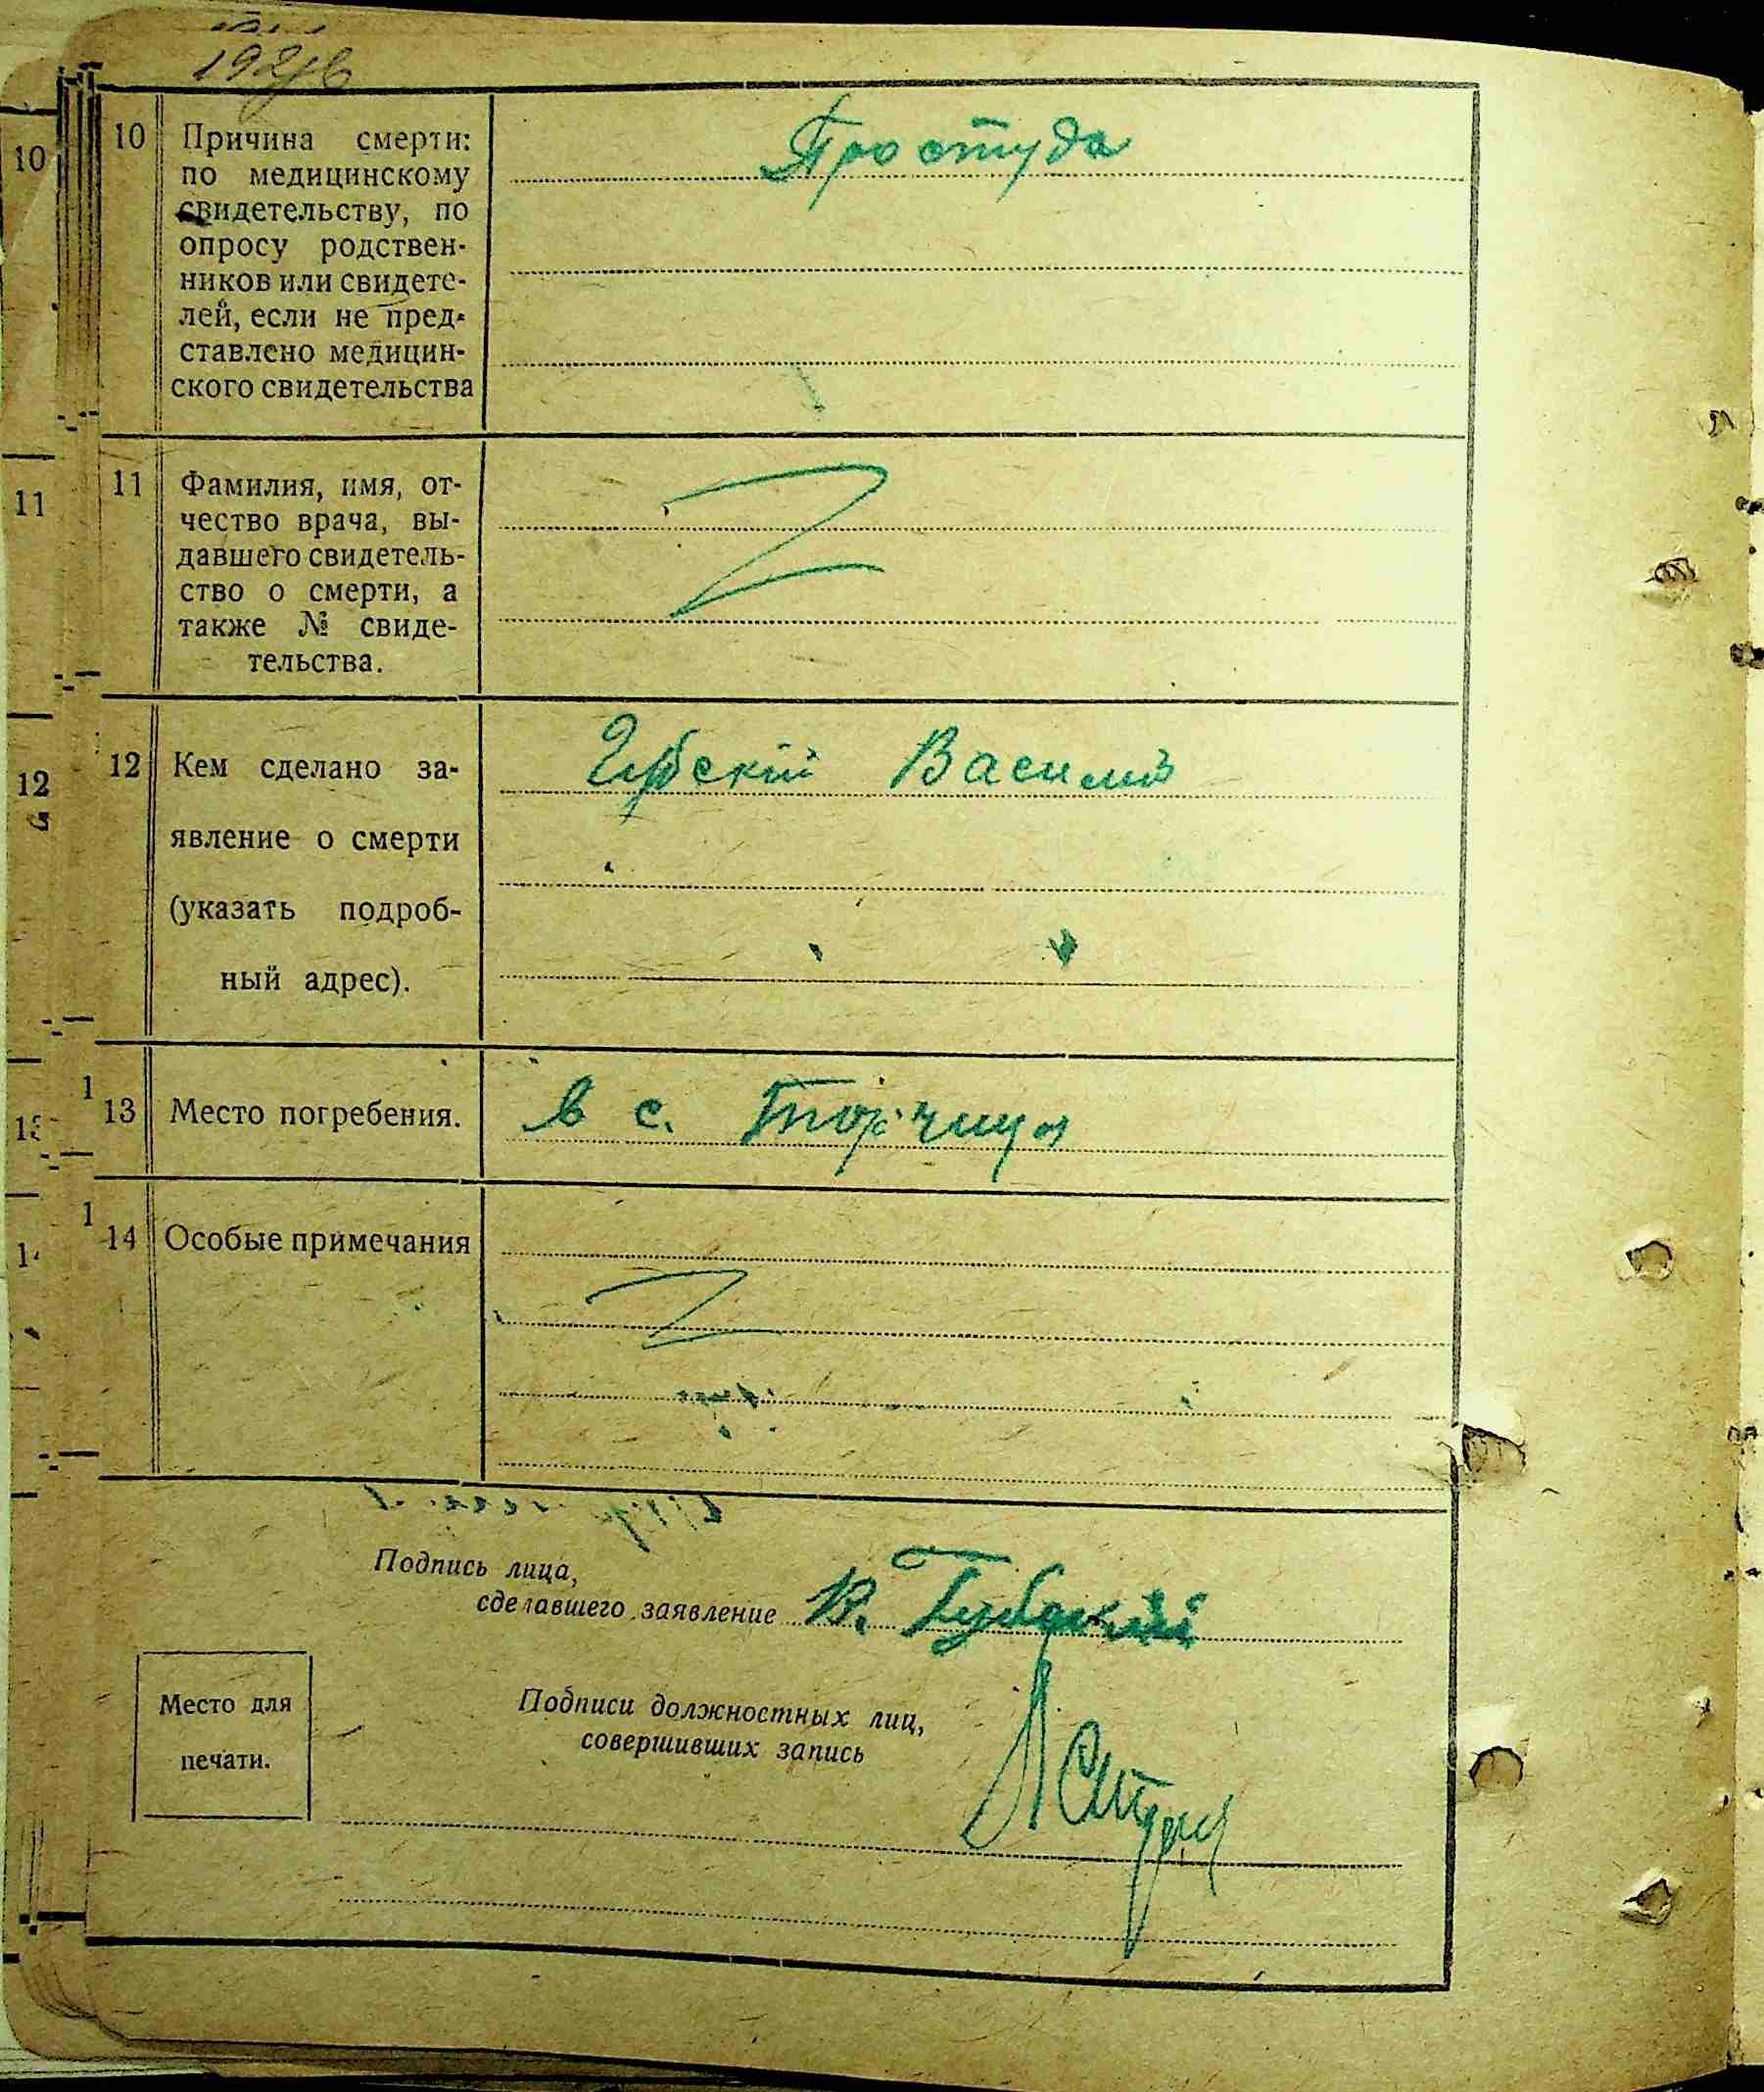 10
10 Причина смерти:
по медицинскому
свидетельству, по
опросу родствен-
ников или свидете-
лей, если не пред-
ставлено медицин-
ского свидетельства
Простуда
11
11 Фамилия, имя, от-
чество врача, вы-
давшего свидетель-
ство о смерти, а
также № свиде-
тельства.
12
12 Кем сделано за-
явление о смерти
(указать подроб-
ный адрес).
Губский Василий
13 Место погребения.
в с.
14 Особые примечания
Подпись лица,
сделавшего заявление В. Губский
Место для
печати.
Подписи должностных лиц,
совершивших запись